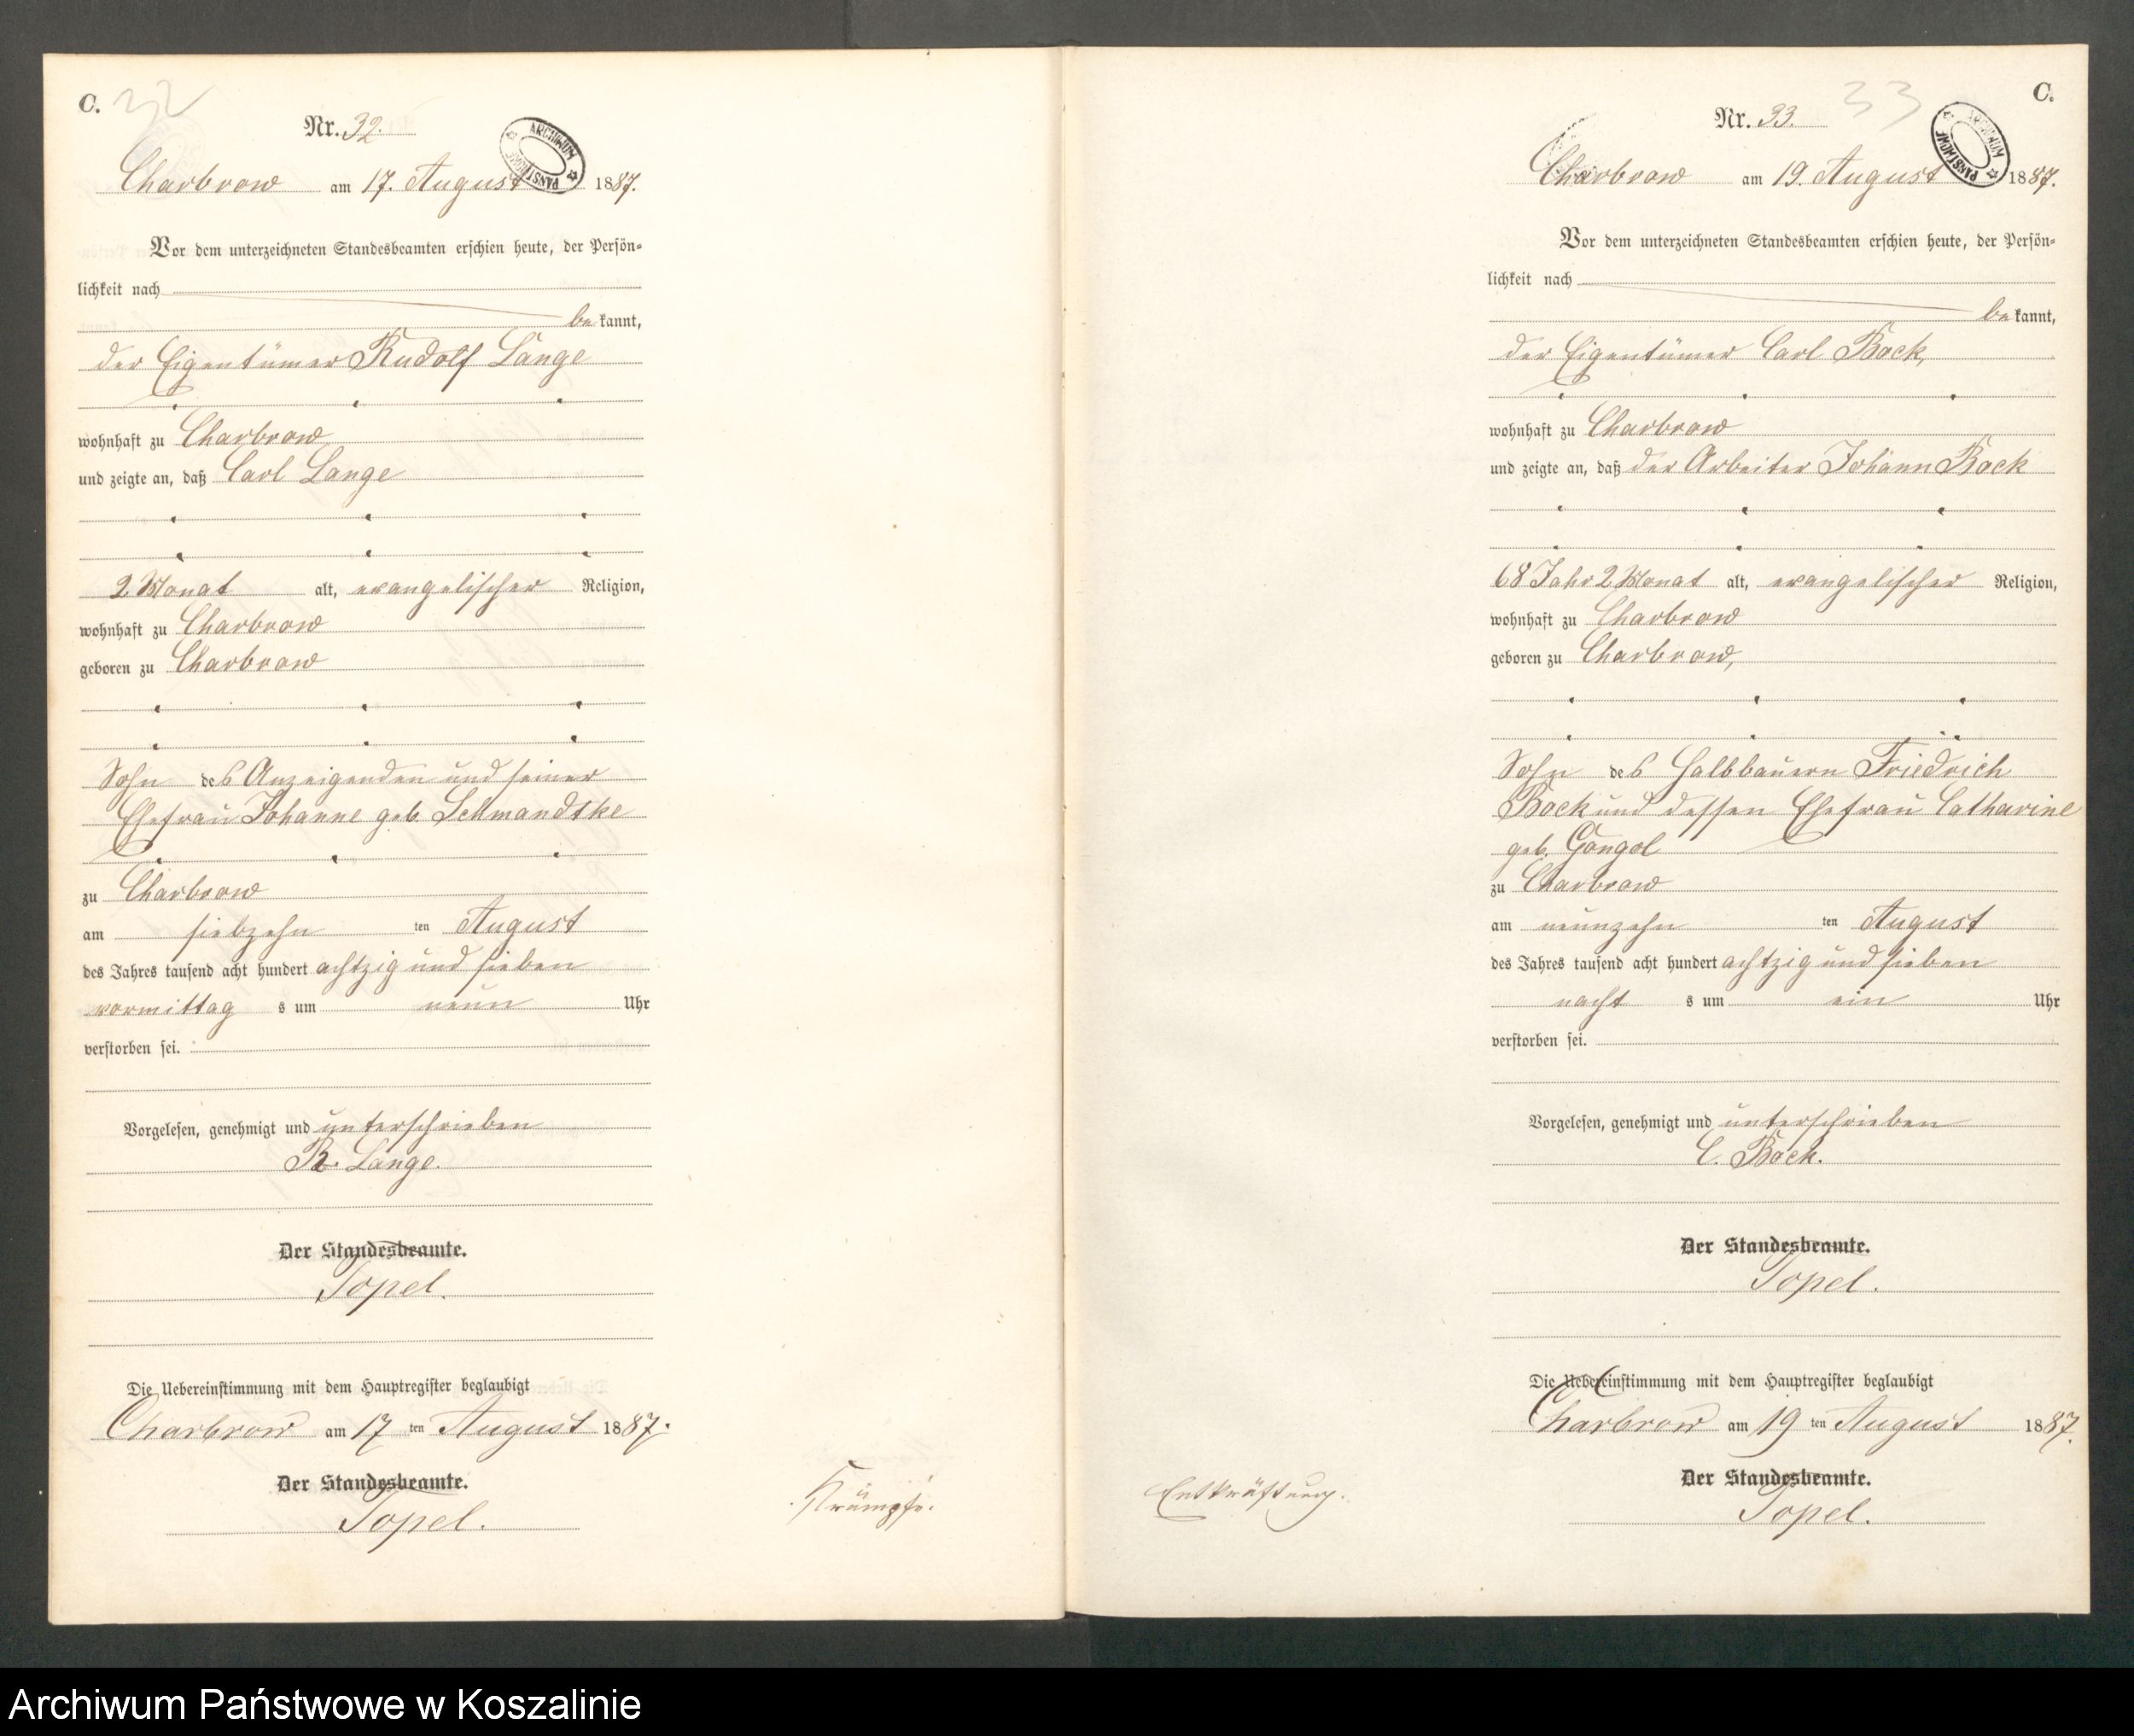 C. 32
Nr. 32.
ARCHIWUM PAŃSTWOWE
Charbrow am 17. August 1887.
Vor dem unterzeichneten Standesbeamten erschien heute, der Persön-
lichkeit nach
bekannt,
der Eigentümer Rudolf Lange
wohnhaft zu Charbrow,
und zeigte an, daß Carl Lange
2 Monat alt, evangelischer Religion,
wohnhaft zu Charbrow
geboren zu Charbrow
Sohn des Anzeigenden und seiner
Ehefrau Johanne geb. Schmandtke
zu Charbrow
am siebzehn ten August
des Jahres tausend acht hundert achtzig und sieben
vormittag s um neun Uhr
verstorben sei.
Vorgelesen, genehmigt und unterschrieben
R. Lange.
Der Standesbeamte.
Topel.
Die Uebereinstimmung mit dem Hauptregister beglaubigt
Charbrow am 17 ten August 1887.
Der Standesbeamte.
Topel.
Krämpfe.
33 C.
Nr. 33.
ARCHIWUM PAŃSTWOWE
Charbrow am 19. August 1887.
Vor dem unterzeichneten Standesbeamten erschien heute, der Persön-
lichkeit nach
bekannt,
der Eigentümer Carl Bock,
wohnhaft zu Charbrow
und zeigte an, daß der Arbeiter Johann Bock
68 Jahr 2 Monat alt, evangelischer Religion,
wohnhaft zu Charbrow
geboren zu Charbrow,
Sohn des Halbbauern Friedrich
Bock und dessen Ehefrau Catharine
geb. Gongol
zu Charbrow
am neunzehn ten August
des Jahres tausend acht hundert achtzig und sieben
nacht s um ein Uhr
verstorben sei.
Vorgelesen, genehmigt und unterschrieben
C. Bock.
Der Standesbeamte.
Topel.
Die Uebereinstimmung mit dem Hauptregister beglaubigt
Charbrow am 19 ten August 1887.
Der Standesbeamte.
Topel.
Entkräftung.
Archiwum Państwowe w Koszalinie